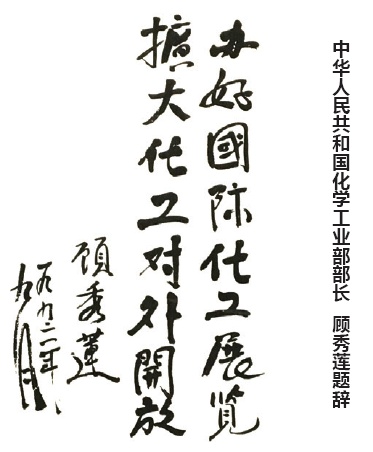 中华人民共和国化学工业部部长 顾秀莲题辞
办好國际化工展览
擴大化工对外開放
顾秀蓮
一九九二年
九月